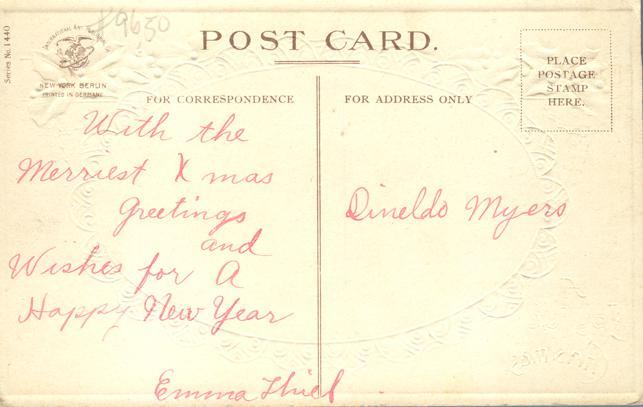 Series No. 1440
#9650
INTERNATIONAL ART
NEW YORK BERLIN
PRINTED IN GERMANY
POST CARD.
PLACE
POSTAGE
STAMP
HERE.
FOR CORRESPONDENCE
FOR ADDRESS ONLY
With the
Merriest Xmas
Greetings
and
Wishes for A
Happy New Year
Emma Thiel
Dineldo Myers